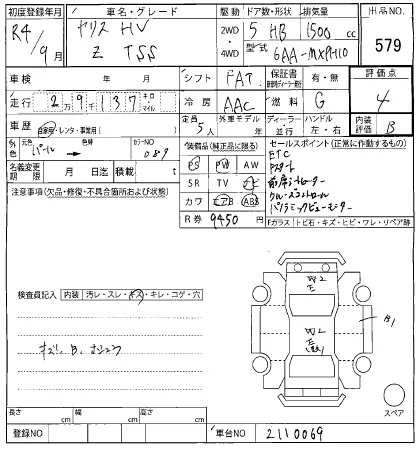 初度登録年月 車名・グレード 駆動 ドア数・形状 排気量 出品NO.
R4/9月 ヤリス HV 2WD 5 HB 1500cc
Z TSS 4WD 型式 6AA-MXPH10 579
車検 年 月 シフト FAT 保証書 有・無 評価点
走行 2万9千137 キロ マイル 冷房 AAC 燃料 G 4
車歴 自家用・レンタ・事業用( ) 定員 5人 ディーラー車 年式 ハンドル 左・右 内装評価 B
外色 元色 パール 色替 カラーNO 089 装備品(純正品に限る) セールスポイント(正常に作動するもの)
名義変更期限 月 日迄 積載 t PS PW ETC
注意事項(欠品・修復・不具合箇所および状態) SR TV ナビ Pスタート
カワ エアB ABS 前席シートヒーター
R券 9450円 クルーズコントロール
パノラミックビューモニター
Fガラス トビ石・キズ・ヒビ・ワレ・リペア跡
検査員記入 内装 汚レ・スレ・キズ・キレ・コゲ・穴
W2
E
W2
B1
長さ cm 幅 cm 高さ cm スペア
登録NO 車台NO 2110069